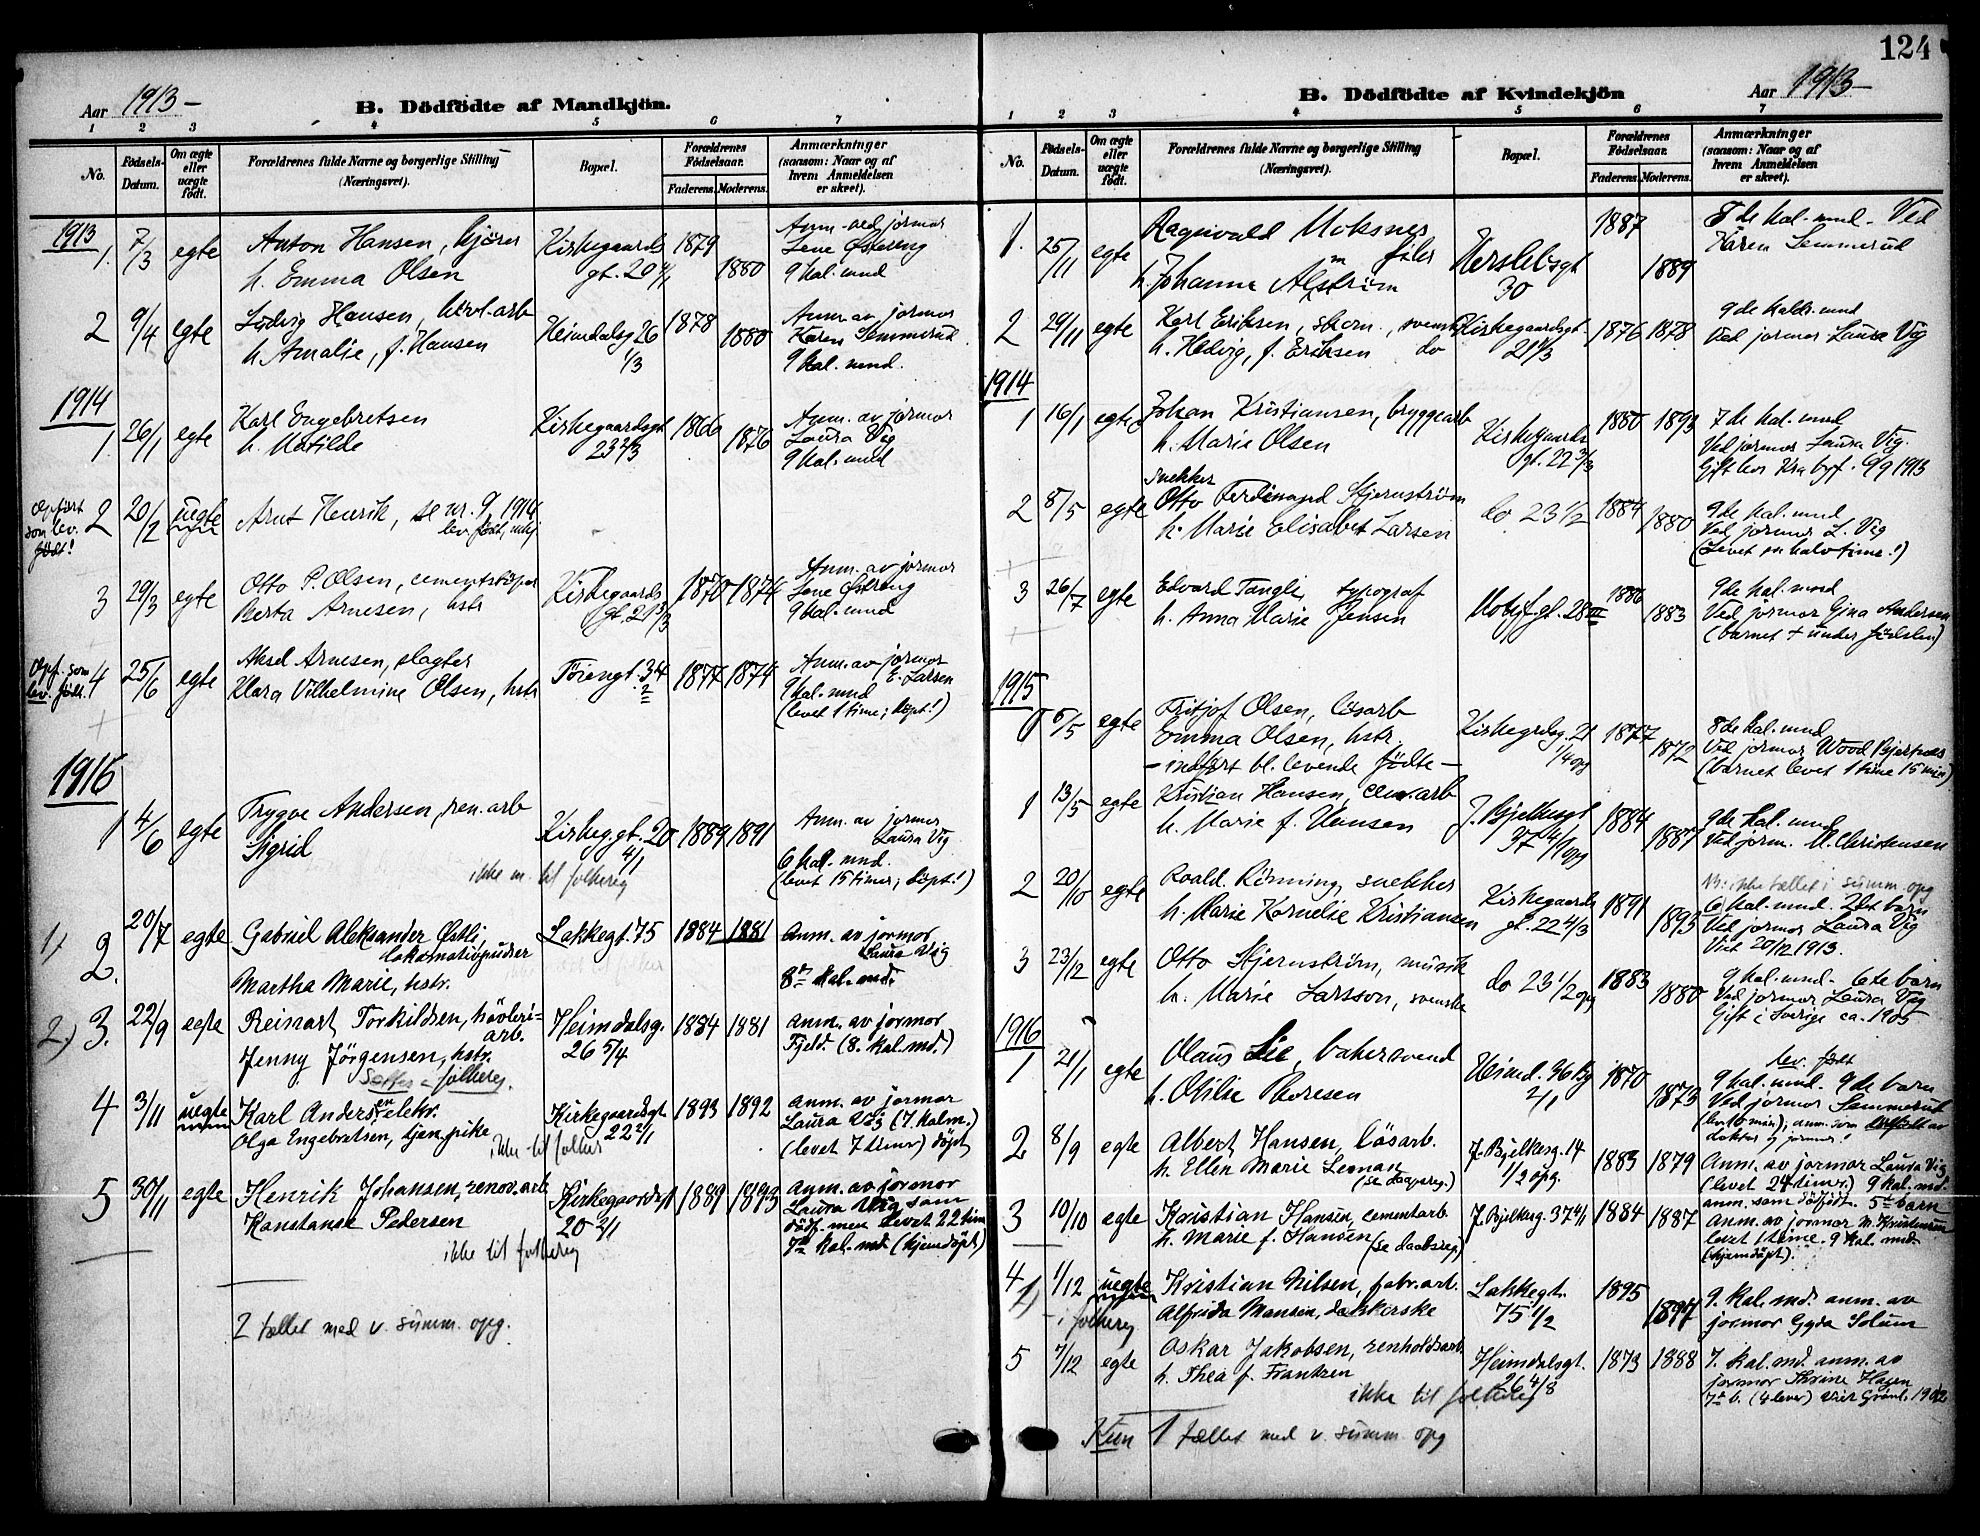 124
Aar 1913-
B. Dödfödte af Mandkjön.
1 2 3 4 5 6 7
No.
Födsels-
Datum.
Om ægte
eller
uægte
födt.
Forældrenes fulde Navne og borgerlige Stilling
(Næringsvei).
Bopæl.
Forældrenes
Födselsaar.
Faderens. Moderens.
Anmærkninger
(saasom: Naar og af
hvem Anmeldelsen
er skeet).
1913
1. 7/3 egte Anton Hansen, kjörer Kirkegaards 1879 1880 Anm. ved jormor
h. Emma Olsen gt. 20 Lene Østreng
9 kal. mnd
2 9/4 egte Ludvig Hansen, arb Heimdalsg 26 1878 1880 Anm. av jormor
h. Amalie, f. Hansen 1/3 Karen Semmerud
9 kal. mnd.
1914
1. 26/1 egte Karl Engebretsen Kirkegaardsgt 1866 1876 Anm. av jormor
h. Matilde 23 2/3 Laura Vig
9 kal. mnd
Opfört
som lev.
født!
2 20/2 uegte Arnt Henrik, se nr. 9, 1914
lev. født,
3 29/3 egte Otto P. Olsen, cementstöper Kirkegaards 1870 1874 Anm. av jormor
Berta Arnesen, hstr gt. 21 Lene Østreng
9 kal. mnd
Opf. som
lev. født.
4 25/6 egte Aksel Arnesen, slagter Töiengt. 34 1877 1874 Anm. av jormor
Klara Vilhelmine Olsen, hstr 2 E. Larsen
9 kal. mnd
(levet 1 time; döpt!)
1916
1 4/6 egte Trygve Andersen, ren. arb Kirkeg.gt. 20 1889 1891 Anm. av jormor
Sigrid 4/1 Laura Vig
6 kal. mnd.
ikke m. til folkereg (levet 15 timer; döpt!)
1) 2. 20/7 egte Gabriel Aleksander Østli Lakkegt. 75 1884 1881 Anm. av jormor
lokomotivpudser Laura Vig
Martha Marie, hstr. 8de kal. md.
2) 3. 22/9 egte Reinart Torkildsen, hövleri- Heimdalsg. 1884 1881 Anm. av jormor
arb. 26 5/4 Fjeld. (8. kal. md.)
Jenny Jörgensen, hstr.
Sættes i folkereg.
4 3/11 uegte Karl Andersen, elekr. Kirkegaardsgt 1893 1892 Anm. av jormor
Olga Engebretsen, tjen. pike 22 2/1 Laura Vig (7. kalm.)
ikke til folker (levet 7 timer) döpt
5 30/11 egte Henrik Johansen, renov. arb Kirkegaardsgt 1889 1893 Anm. av jormor
Konstanse Pedersen 20 2/1 Laura Vig som
dödf. men levet 22 tim
ikke til folkereg 7de kal. md. (hjemdöpt)
2 tællet med v. summ. opg.
Aar 1913-
B. Dödfödte af Kvindekjön
1 2 3 4 5 6 7
No.
Födsels-
Datum.
Om ægte
eller
uægte
födt.
Forældrenes fulde Navne og borgerlige Stilling
(Næringsvei).
Bopæl.
Forældrenes
Födselsaar.
Faderens. Moderens.
Anmærkninger
(saasom: Naar og af
hvem Anmeldelsen
er skeet).
1. 25/11 egte Ragnvald Moksnes, filer Herslebsgt 1887 1889 8de kal. mnd. Ved
h. Johanne Almström 30 Karen Semmerud
2 29/11 egte Karl Eriksen, skom., svensk Kirkegaardsgt. 1876 1878 9de kal. mnd
h. Hedvig, f. Eriksen do 21 1/3 Ved jormor Laura Vig
1914
1 16/1 egte Johan Kristiansen, bryggearb Kirkegaards 1880 1893 7de kal. mnd
h. Marie Olsen gt. 22 3/3 Ved jormor Laura Vig.
Gift hos Kra byf. 9/9 1913
snekker
2 8/5 egte Otto Ferdinand Stjernström do 23 1/2 1884 1880 9de kal. mnd
h. Marie Elisabet Larsen Ved jormor L. Vig
(Levet en halv time!)
3 26/7 egte Edvard Tangli, typograf Motzf. gt. 28 III 1886 1883 9de kal. mnd
h. Anna Marie Jensen Ved jormor Gina Andersen
(barnet + under fødslen)
1915
0 5/5 egte Fritjof Olsen, løsarb Kirkegrdsg. 21 1877 1872 8de kal. mnd
Emma Olsen, hstr. 1/4 opg Ved jormor Wood Bjertnæs
- indført bl. levende fødte - (barnet levet 1 time 15 min)
1 13/5 egte Kristian Hansen, cem. arb J. Bjelkesgt 1884 1887 9de kal. mnd
h. Marie f. Hansen 37 4/1 opg Ved jorm. M. Christensen
2 20/10 egte Roald Rönning, snekker Kirkegaards 1891 1895 N: ikke tællet i summ. opg
h. Marie Kornelie Kristiansen gt. 22 4/3 6 kal. mnd. 2det barn
Ved jormor Laura Vig
Viet 20/12 1913.
3 23/12 egte Otto Stjernström, musik do 23 1/2 opg 1883 1880 9 kal. mnd. 6te barn
h. Marie Larsson, svenske Ved jormor Laura Vig
Gift i Sverige ca. 1905
1916
1 21/1 egte Olaus Lie, bakersvend Heimd. 36 Bg 1870 1873 lev. født
h. Otilie Thoresen 2/1 9 kal. mnd. 9de barn
Ved jormor Semmerud
(lev 10 min); anm. som dødfødt av
doktor og jormor!
2 8/9 egte Albert Hansen, lösarb. J. Bjelkesg. 14 1883 1879 Anm. av jormor Laura Vig
h. Ellen Marie Leman 1/2 opg. (levet 24 timer.) 9 kal. md.
(se daapsreg.) anm. som dödfödt. 5te barn
3 10/10 egte Kristian Hansen, cementarb J. Bjelkesg. 37 4/1 1884 1887 Anm. av jormor M. Kristensen
h. Marie f. Hansen (se daabsreg) levet 1 time. 9 kal. md.
(hjemdöpt).
4 1) 1/12 uegte Kristian Nilsen, fabr. arb. Lakkegt. 1895 1897 9. kal. md. anm. av
- i folkereg Alfrida Hansen, dækkerske 75 1/2 jormor Gyda Solum
5 7/12 egte Oskar Jakobsen, renholdsarb. Heimdalsgt. 1873 1888 7. kal. md. anm. av
h. Thea f. Frantzen 26 4/8 jormor Thrine Hagen
ikke til folkereg 7de b. (4 lever) Viet Grønl. 1902
Kun 1 tællet med v. summ. opg